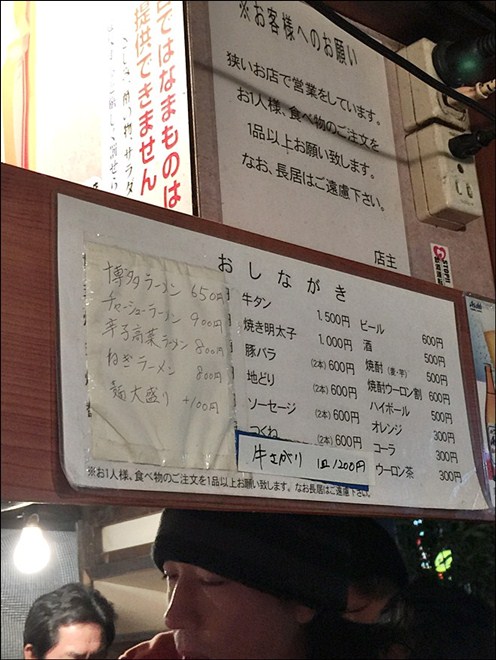 屋台ではなまものは
提供できません
※お客様へのお願い
狭いお店で営業をしています。
お1人様、食べ物のご注文を
1品以上お願い致します。
なお、長居はご遠慮下さい。
店主
おしながき
博多ラーメン 650円
チャーシューラーメン 900円
辛子高菜ラーメン 800円
ねぎラーメン 800円
麺大盛り +100円
牛タン 1.500円
焼き明太子 1.000円
豚バラ (2本) 600円
地どり (2本) 600円
ソーセージ (2本) 600円
つくね (2本) 600円
牛さがり 1皿 1200円
ビール 600円
酒 500円
焼酎 (麦・芋) 500円
焼酎ウーロン割 600円
ハイボール 500円
オレンジ 300円
コーラ 300円
ウーロン茶 300円
※お1人様、食べ物のご注文を1品以上お願い致します。なお長居はご遠慮下さい
STOP!
Asahi